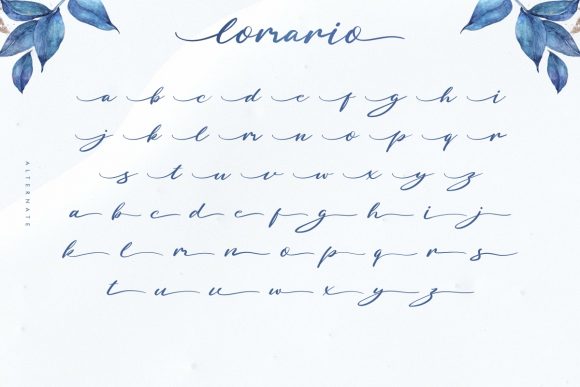 lomario
a b c d e f g h i
j k l m n o p q r
s t u v w x y z
ALTERNATE
a b c d e f g h i j
k l m n o p q r s
t u v w x y z